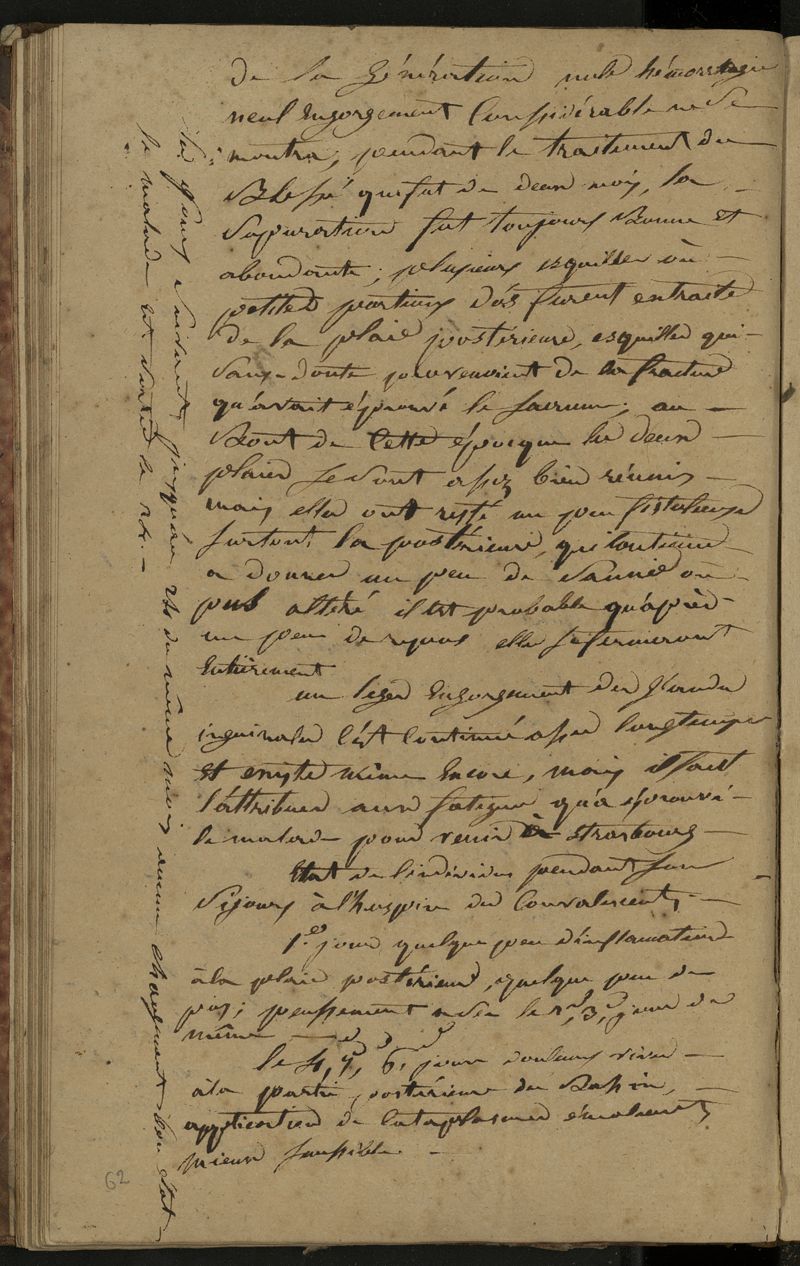 de la Génération nule hémorragie
neul Engorgement Considérable ne Se
montra, pendant le traitement du
Blessé qui fut de deux mois, la
Supuration fut toujours Bonne et
abondante; plusieurs esquilles où
petites parties d'os furent extraite
de la plaie postérieure, esquilles qui
Sans-doute provenoient de la fracture
qu'avait éprouvé le Sacrum; au
Bout de Cette époque les deux
plaies se Sont assez bien réunis
mais elles ont resté un peu fistuleuse
surtout la postérieure, qui Continue
a donner un peu de Sanie où
pus altéré il est probable qu'après
un peu de repos elle se fermeront
Entièrement
un léger Engorgement des Glandes
inguinales C'est Continué assez longtemps
et existe même Encore, mais il faut
l'attribuer aux fatigue qu'a éprouvé
le malade pour venir à Strasbourg
Etat de l'individu pendant son
Séjours à l'hospice des Convalescents
1er jour quelque peu d'inflamation
à la plaie postérieure, quelque peu de
pus; pensement Sec le 2d, 3e, jour de
même
le 4, 5, 6e, jour douleurs vives
à la partie postérieure du Bassin,
application de Cataplasmes émolients
mieux Sensible.
les jours Suivants jusqu'au du même mois aucun changement bon état
le malade est Sorti le
62